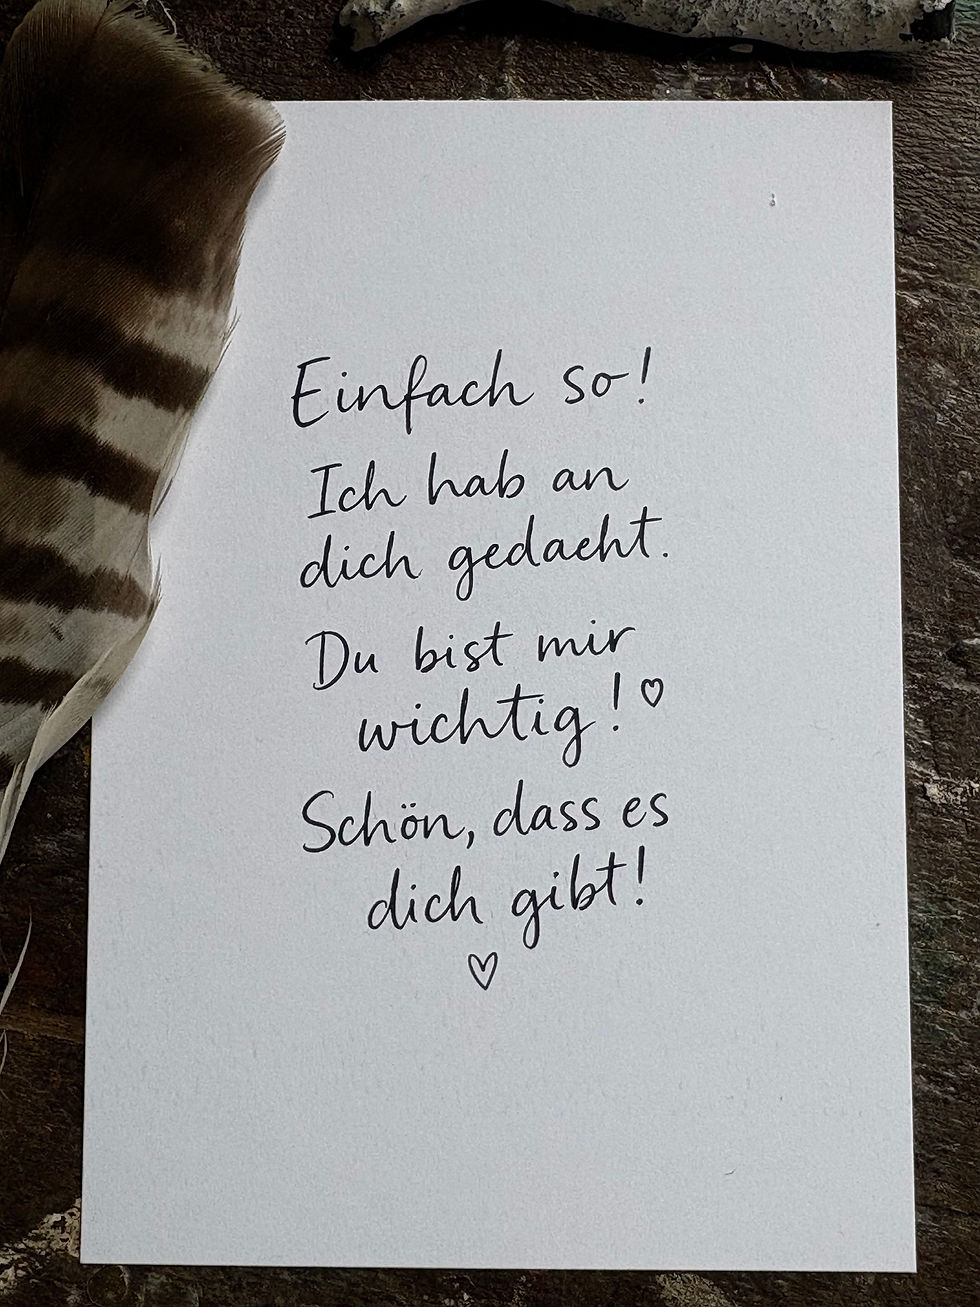 Einfach so!
Ich hab an
dich gedacht.
Du bist mir
wichtig! ♡
Schön, dass es
dich gibt!
♡